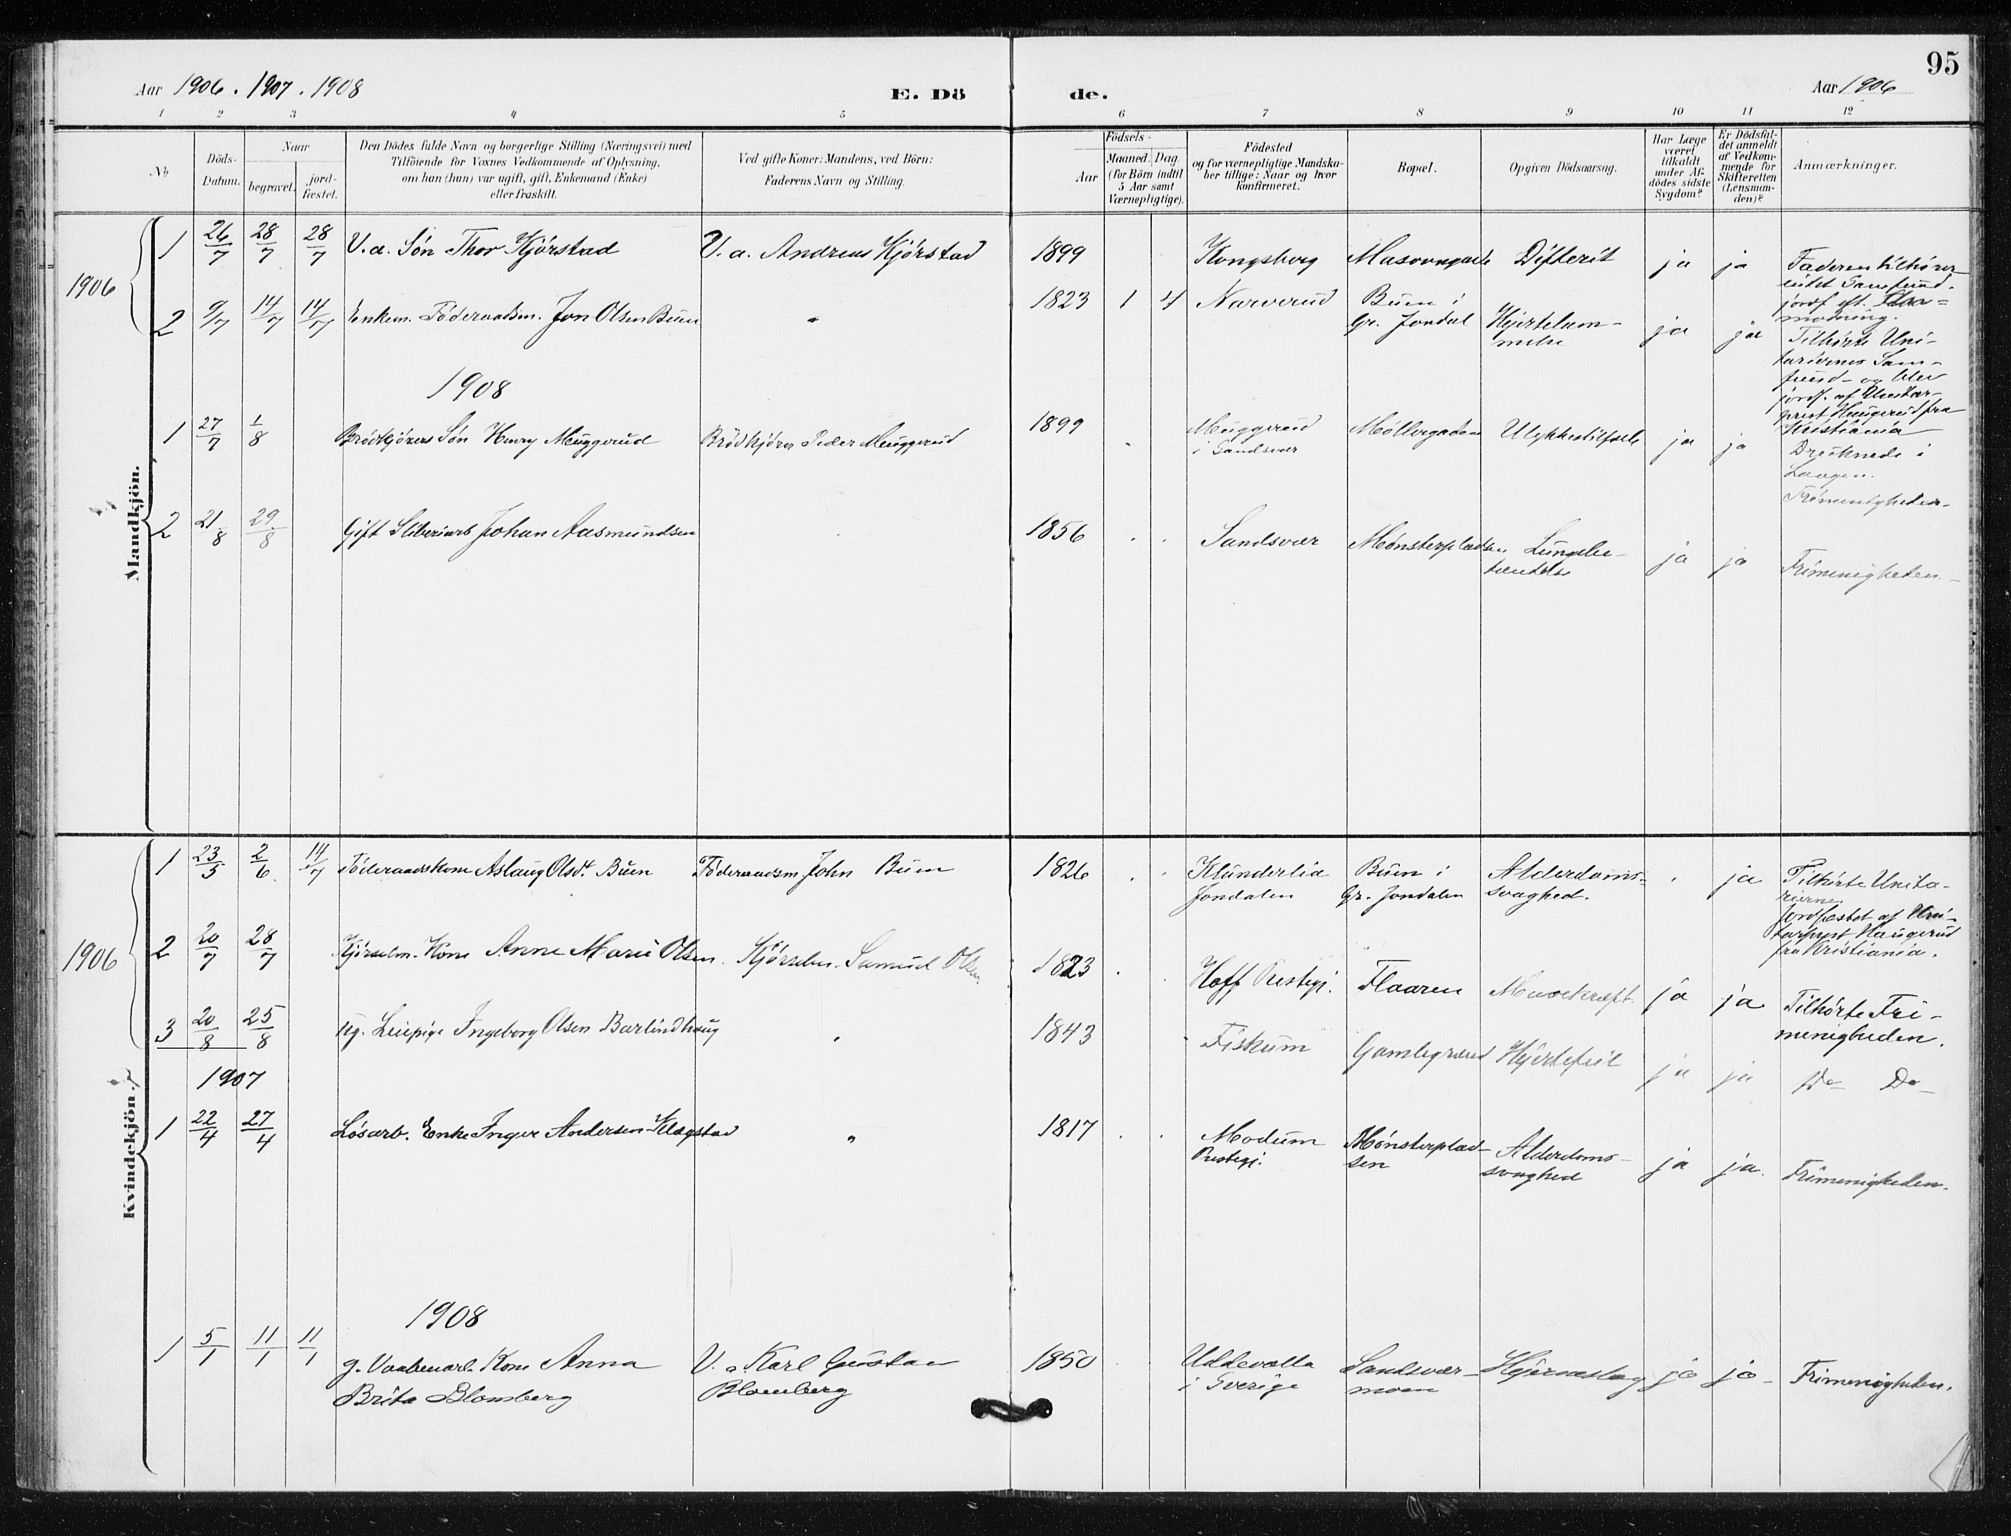 95
Aar 1906. 1907. 1908
E. Dö de.
Aar 1906
1 2 3 4 5 6 7 8 9 10 11 12
No
Döds-
Datum.
Naar
begravet.
jord-
fæstet.
Den Dödes fulde Navn og borgerlige Stilling (Næringsvei) med
Tilföiende for Voxnes Vedkommende af Oplysning,
om han (hun) var ugift, gift, Enkemand (Enke)
eller fraskilt.
Ved gifte Koner: Mandens, ved Börn:
Faderens Navn og Stilling.
Födsels-
Aar
Maaned. Dag.
(for Börn indtil
5 Aar samt
Værnepligtige).
Födested
og for værnepligtige Mandska-
ber tillige: Naar og hvor
konfirmeret.
Bopæl.
Opgiven Dödsaarsag.
Har Læge
været
tilkaldt
under Af-
dödes sidste
Sygdom?
Er Dödsfal-
det anmeldt
af Vedkom-
mende for
Skifteretten
(Lensman-
den)?
Anmærkninger.
Mandkjön.
1906
1 26/7 28/7 28/7 V. a. Sön Thor Kjørstad V. a. Andreas Kjørstad 1899 Kongsberg Difterit ja ja
Faderen tilhører
intet Samfund.
jordf. eft.
modning.
2 9/7 14/7 14/7 Enkem. Föderaadsm. Jon Olsen Buen " 1823 1 4 Narverud Buen i
Gr. Jondal
Hjertelam-
melse
ja ja
Tilhørte Uni-
tariernes Sam-
fund - og blev
jordf. af Unitar-
prest Haugerud fra
Kristiania
1908
1 27/7 1/8 Brödkjörers Sön Henry Muggerud Brödkjörer Peder Muggerud 1899 Muggerud
i Sandsvær
Møllergaden Ulykkestilfælde ja ja
Druknede i
Laagen.
Frimenigheden
2 21/8 29/8 Gift Sliberiarb Johan Aasmundsen 1856 Sandsvær Mønsterpladsen Lungebe-
tændelse
ja ja Frimenigheden.
Kvindekjön.
1906
1 23/5 2/6 14/7 Föderaadskone Aslaug Olsdt. Buen Föderaadsm John Buen 1826 Klunderlia
Jondalen
Buen i
Gr. Jondalen
Alderdoms-
svaghed.
ja
Tilhørte Unita-
rierne.
Jordfæstet af Uni-
tarprest Haugerud
fra Kristiania.
2 20/7 28/7 Kjørselm. Kone Anne Marie Olsen. Kjørselm. Samuel Olsen. 1823 Hoff Prestegj. Flaaren Mavekræft. ja ja
Tilhørte Fri-
menigheden.
3 20/8 25/8 ug. Leiepige Ingeborg Olsen Barlindhaug " 1843 Fiskum Gamlegrænd Hjertefeil ja ja Do Do
1907
1 22/4 27/4 Løsarb. Enke Inger Andersen Klagstad " 1817 Modum
Prestegj.
Mønsterplad-
sen
Alderdoms-
svaghed
ja ja. Frimenigheden.
1908
1 5/1 11/1 11/1 g. Vaabenarb. Kone Anna
Brita Blomberg
V. a Karl Gustav
Blomberg
1850 Uddevalla
i Sverige
Sandsvær-
moen
Hjerneslag ja ja Frimenigheden.